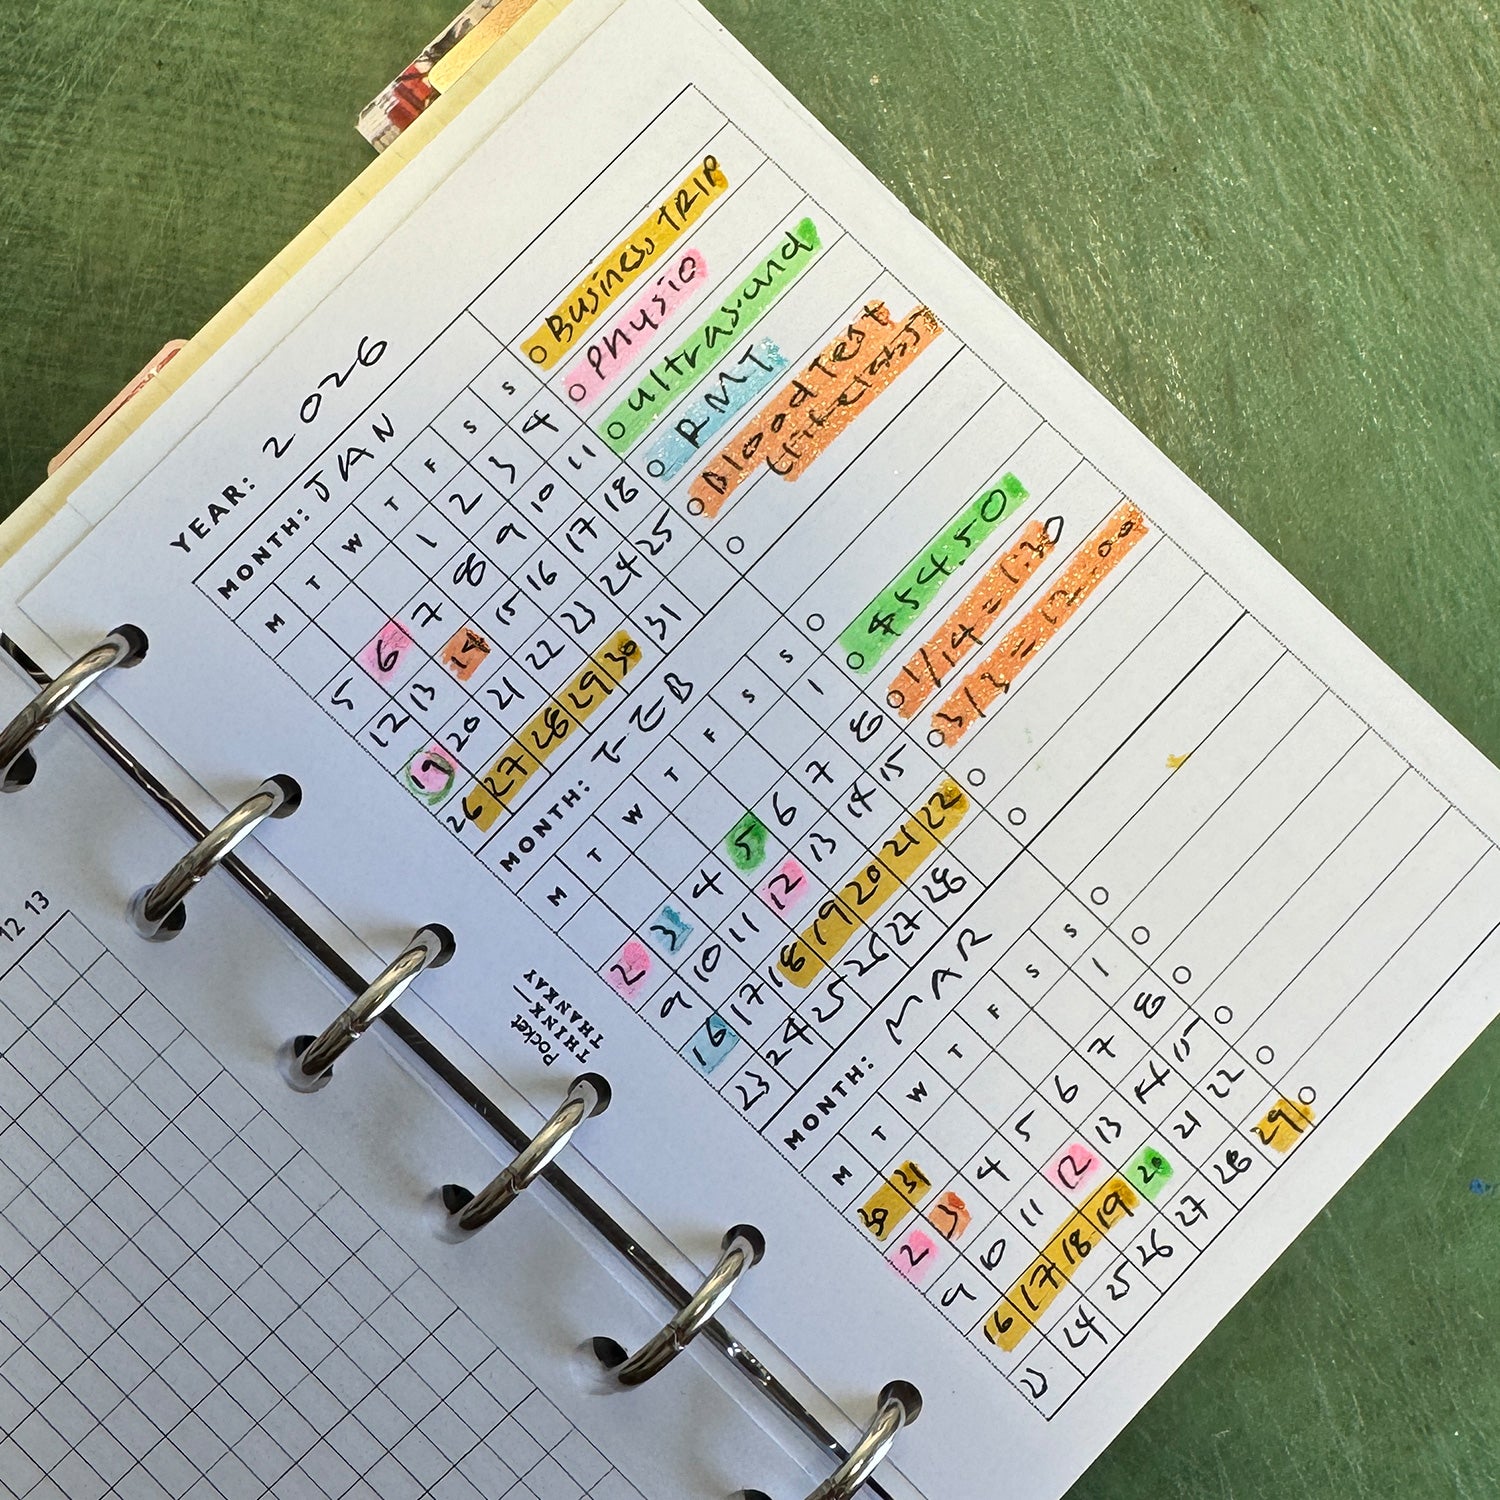 YEAR: 2026
MONTH: JAN
M T W T F S S
1 2 3 4
5 6 7 8 9 10 11
12 13 14 15 16 17 18
19 20 21 22 23 24 25
26 27 28 29 30 31
Business TRIP
Physio
Ultrasound
RMT
Blood Test
(Lifelabs)
MONTH: FEB
M T W T F S S
1
2 3 4 5 6 7 8
9 10 11 12 13 14 15
16 17 18 19 20 21 22
23 24 25 26 27 28
$54.50
1/14 = 1:30
3/3 = 12:00
MONTH: MAR
M T W T F S S
30 31 1
2 3 4 5 6 7 8
9 10 11 12 13 14 15
16 17 18 19 20 21 22
23 24 25 26 27 28 29
Pocket
THINK
THANKAY
12 13